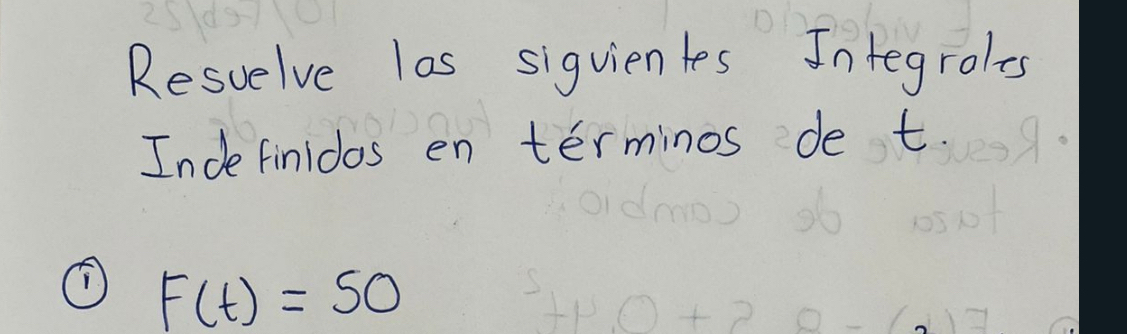 Resuelve las siguientes Integrales
Indefinidas en términos de t.
① F(t) = 50